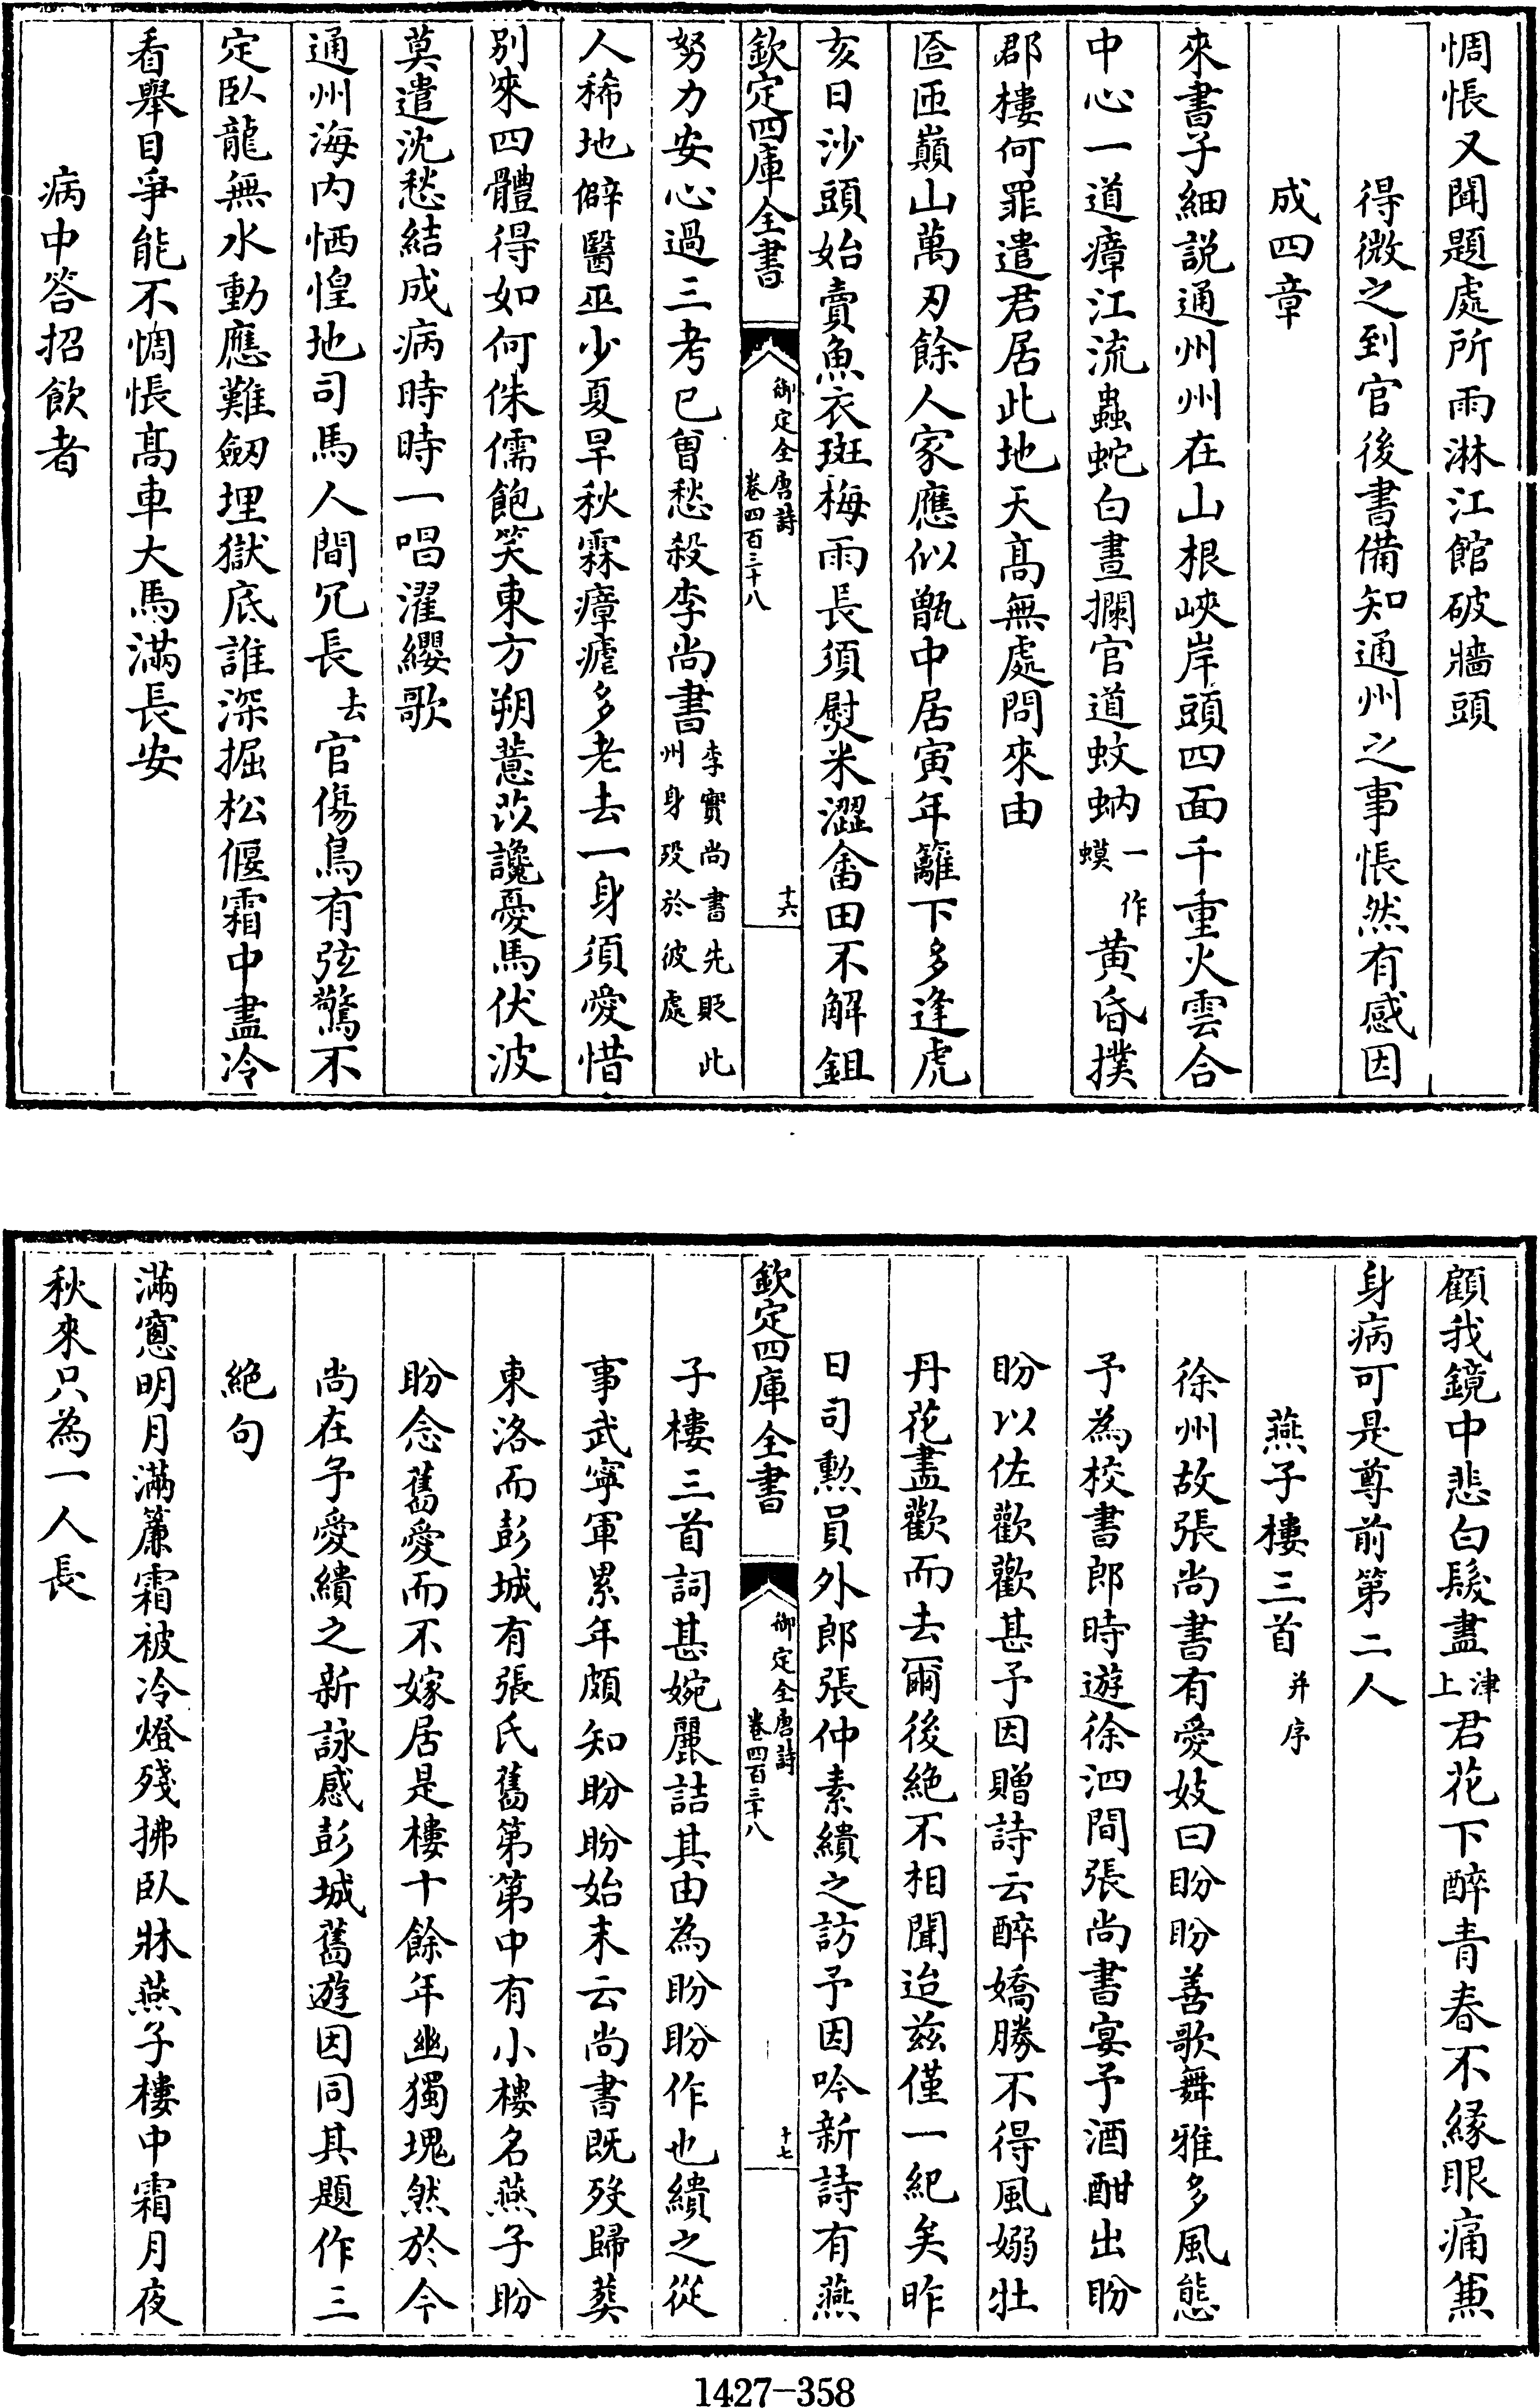 惆悵又聞題處所雨淋江館破牆頭
得微之到官後書備知通州之事悵然有感因
成四章
來書子細説通州州在山根峽岸頭四面千重火雲合
中心一道瘴江流蟲蛇白晝攔官道蚊蚋一作蟆黄昏撲
郡樓何罪遣君居此地天髙無處問來由
匼匝巔山萬刃餘人家應似甑中居寅年籬下多逢虎
亥日沙頭始賣魚衣斑梅雨長須熨米澀畬田不解鉏
欽定四庫全書
御定全唐詩
卷四百三十八
十六
努力安心過三考已曽愁殺李尚書李實尚書先貶此州身歿於彼處
人稀地僻醫巫少夏旱秋霖瘴瘧多老去一身須愛惜
别來四體得如何侏儒飽笑東方朔薏苡讒憂馬伏波
莫遣沈愁結成病時時一唱濯纓歌
通州海内恓惶地司馬人間冗長去官傷鳥有弦驚不
定臥龍無水動應難劔埋獄底誰深掘松偃霜中盡冷
看舉目爭能不惆悵髙車大馬滿長安
病中答招飲者
顧我鏡中悲白髮盡津上君花下醉青春不緣眼痛兼
身病可是尊前第二人
燕子樓三首并序
徐州故張尚書有愛妓曰盼盼善歌舞雅多風態
予為校書郎時遊徐泗間張尚書宴予酒酣出盼
盼以佐歡歡甚予因贈詩云醉嬌勝不得風嫋牡
丹花盡歡而去爾後絶不相聞迨兹僅一紀矣昨
日司勲員外郎張仲素繢之訪予因吟新詩有燕
欽定四庫全書
御定全唐詩
卷四百三十八
十七
子樓三首詞甚婉麗詰其由為盼盼作也繢之從
事武寧軍累年頗知盼盼始末云尚書既歿歸葬
東洛而彭城有張氏舊第第中有小樓名燕子盼
盼念舊愛而不嫁居是樓十餘年幽獨塊然於今
尚在予愛繢之新詠感彭城舊遊因同其題作三
絶句
滿窻明月滿簾霜被冷燈殘拂臥牀燕子樓中霜月夜
秋來只為一人長
1427-358